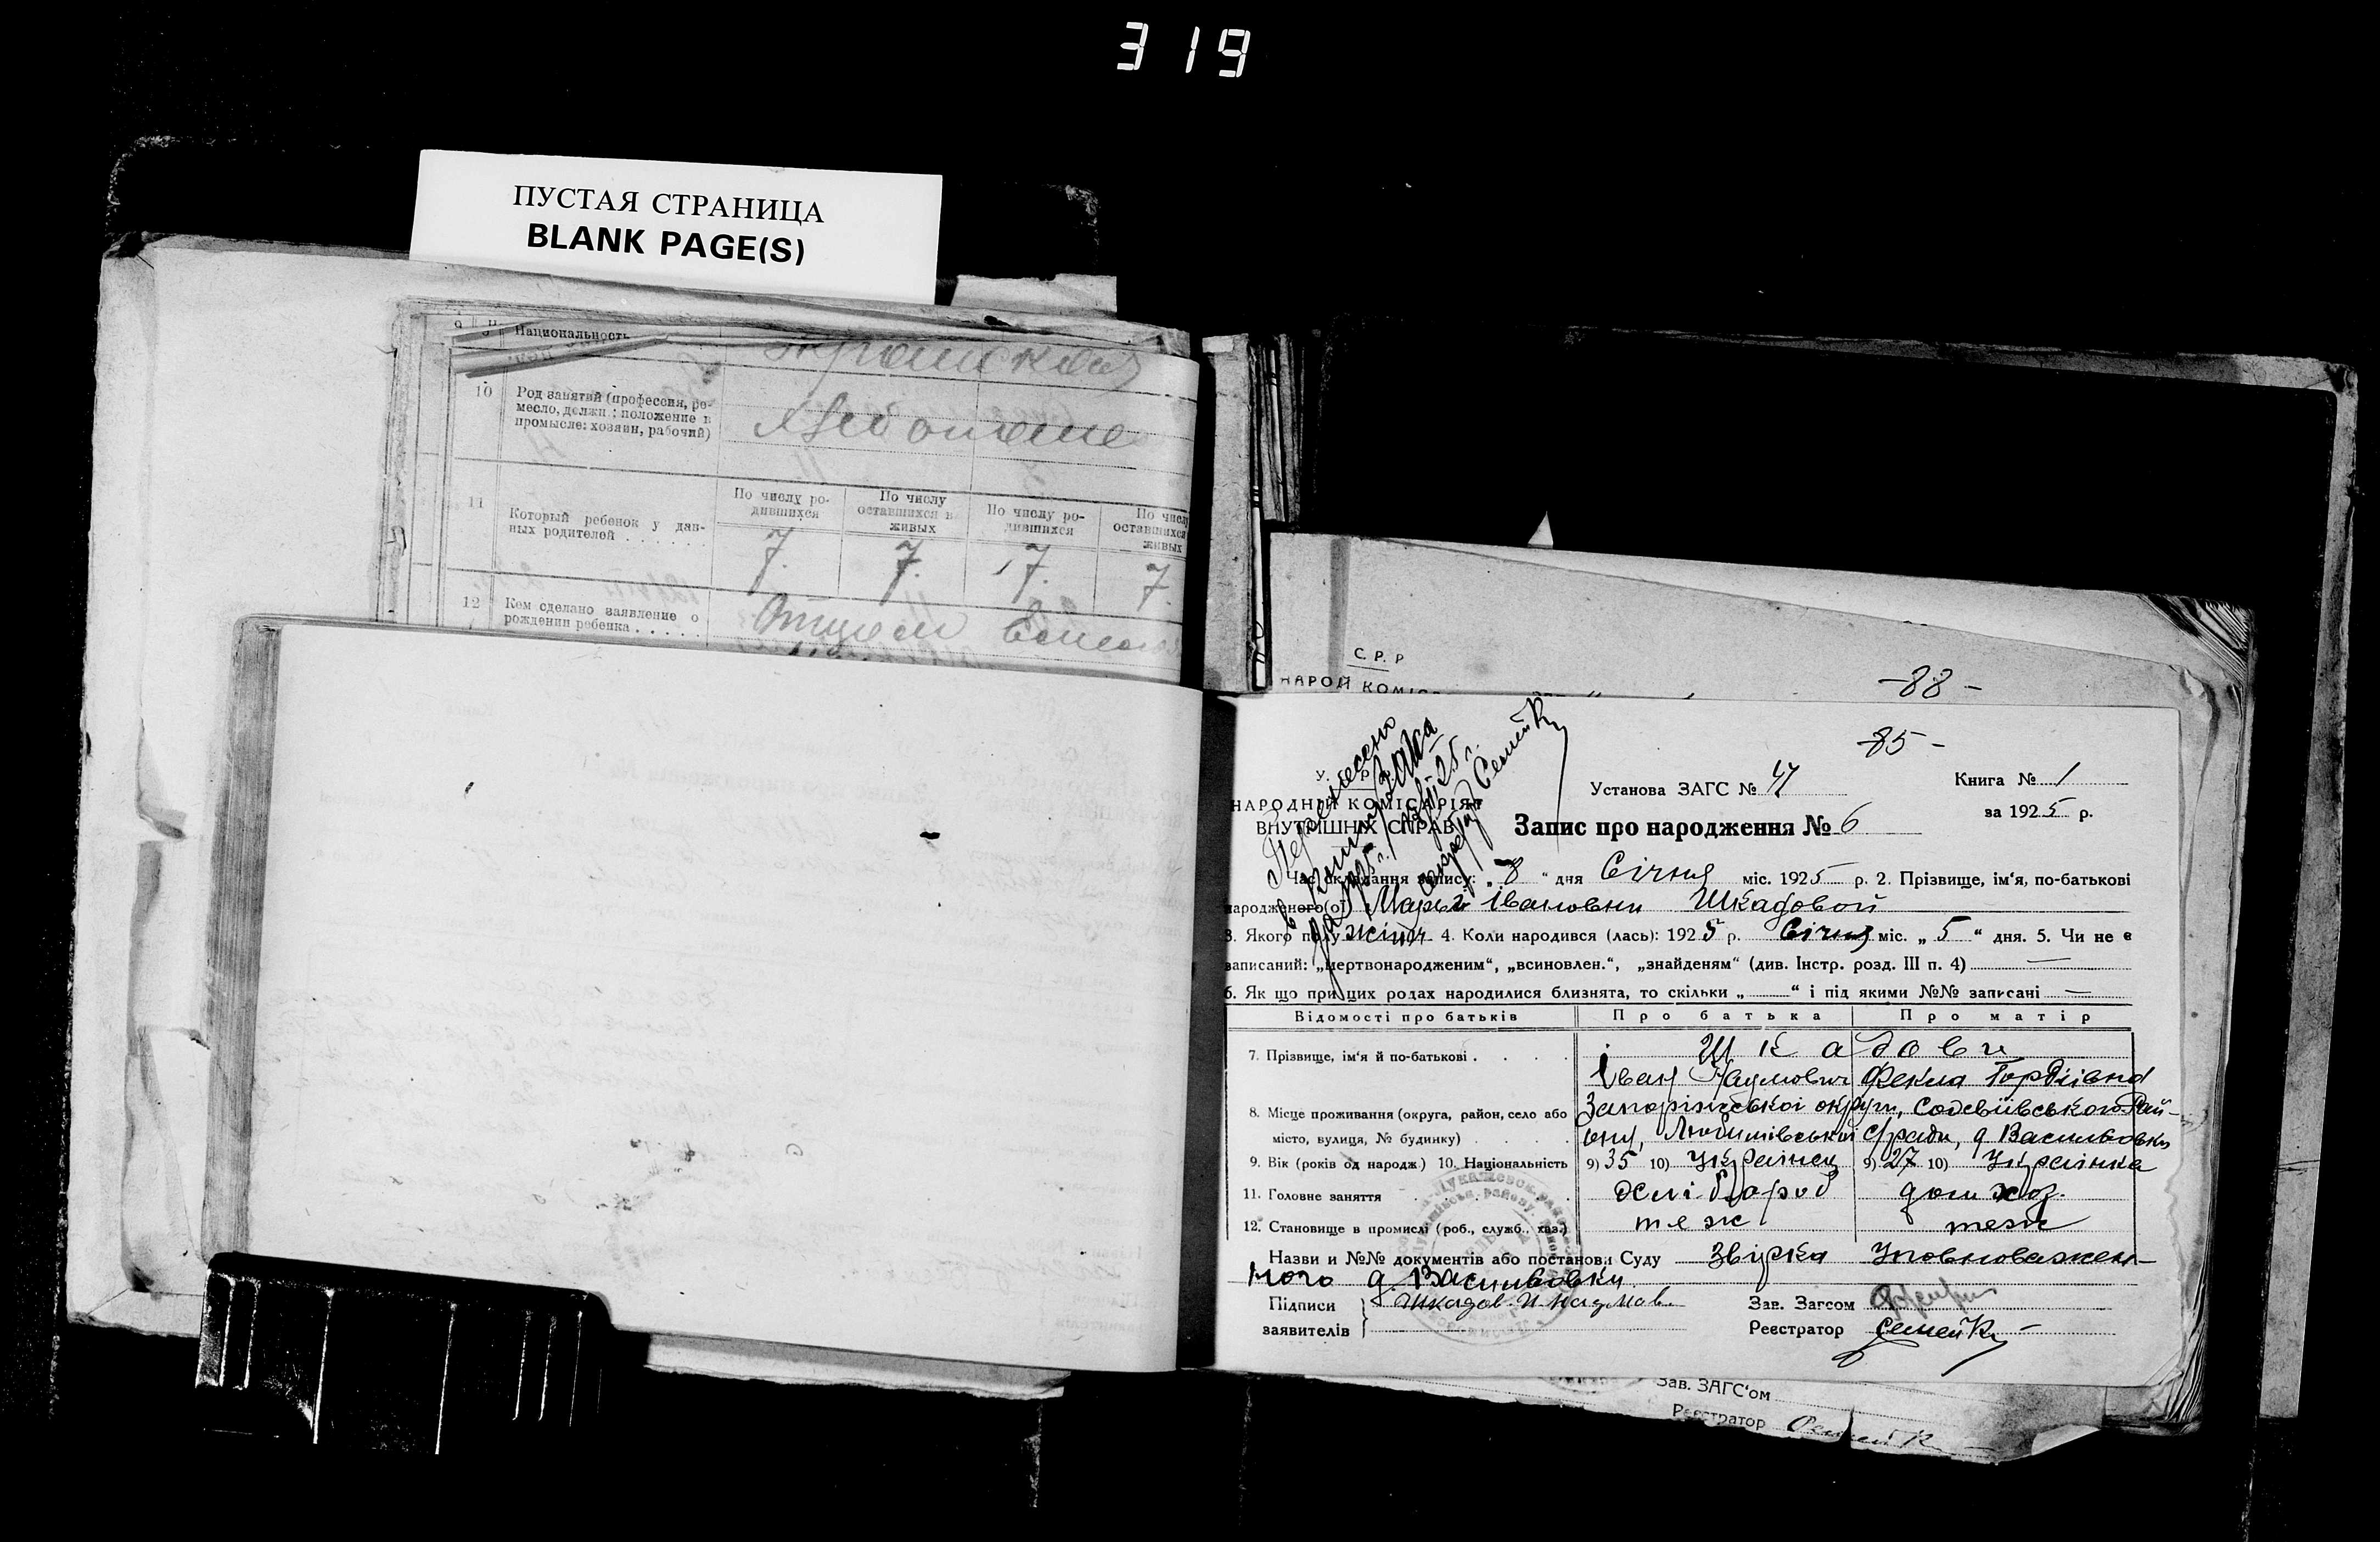 319
ПУСТАЯ СТРАНИЦА
BLANK PAGE(S)
9 Национальность
10 Род занятий (профессия, ремесло, должн.: положение в промысле: хозяин, рабочий)
11 Который ребенок у данных родителей . . . . . . .
По числу родившихся По числу оставшихся в живых По числу родившихся По числу оставшихся живых
7. 7. 7. 7.
12 Кем сделано заявление о рождении ребенка . . . . .
Отцом
С. Р. Р
НАРОД КОМІС
-88-
-85-
У.
НАРОДНИЙ КОМІСАРІЯТ
ВНУТРІШНІХ СПРАВ
Установа ЗАГС № 47
Книга № 1
за 1925 р.
Запис про народження № 6
Час складання запису: „8“ дня Січня міс. 1925 р. 2. Прізвище, ім‘я, по-батькові
народженого(ої) Марьї Івановни Шкадовой
3. Якого полу жіноч 4. Коли народився (лась): 1925 р. Січня міс. „5“ дня. 5. Чи не є
записаний: „мертвонародженим“, „всиновлен.“, „знайденям“ (див. Інстр. розд. III п. 4) —
6. Як що при цих родах народилися близнята, то скільки „ “ і під якими №№ записані —
Відомості про батьків Про батька Про матір
7. Прізвище, ім‘я й по-батькові . . . . Шкадови
Іван Наумович Фекла Гордіівна
8. Місце проживання (округа, район, село або Запоріжської округи, Софіївського Рай-
місто, вулиця, № будинку) . . . . ону, Любимівської с/ради, д Васильовки
9. Вік (років од народж) 10. Національність 9) 35 10) Українец 9) 27 10) Українка
11. Головне заняття . . . . хлібороб дом хоз.
12. Становище в промислі (роб., служб., хаз.) теж теж
Назви и №№ документів або постанови Суду Звірка Уповноважен-
ного д. Васильовки
Підписи Шкадов И Наумов. Зав. Загсом
заявителів Реєстратор Семейк
Зав. ЗАГС‘ом
Реєстратор Семейк